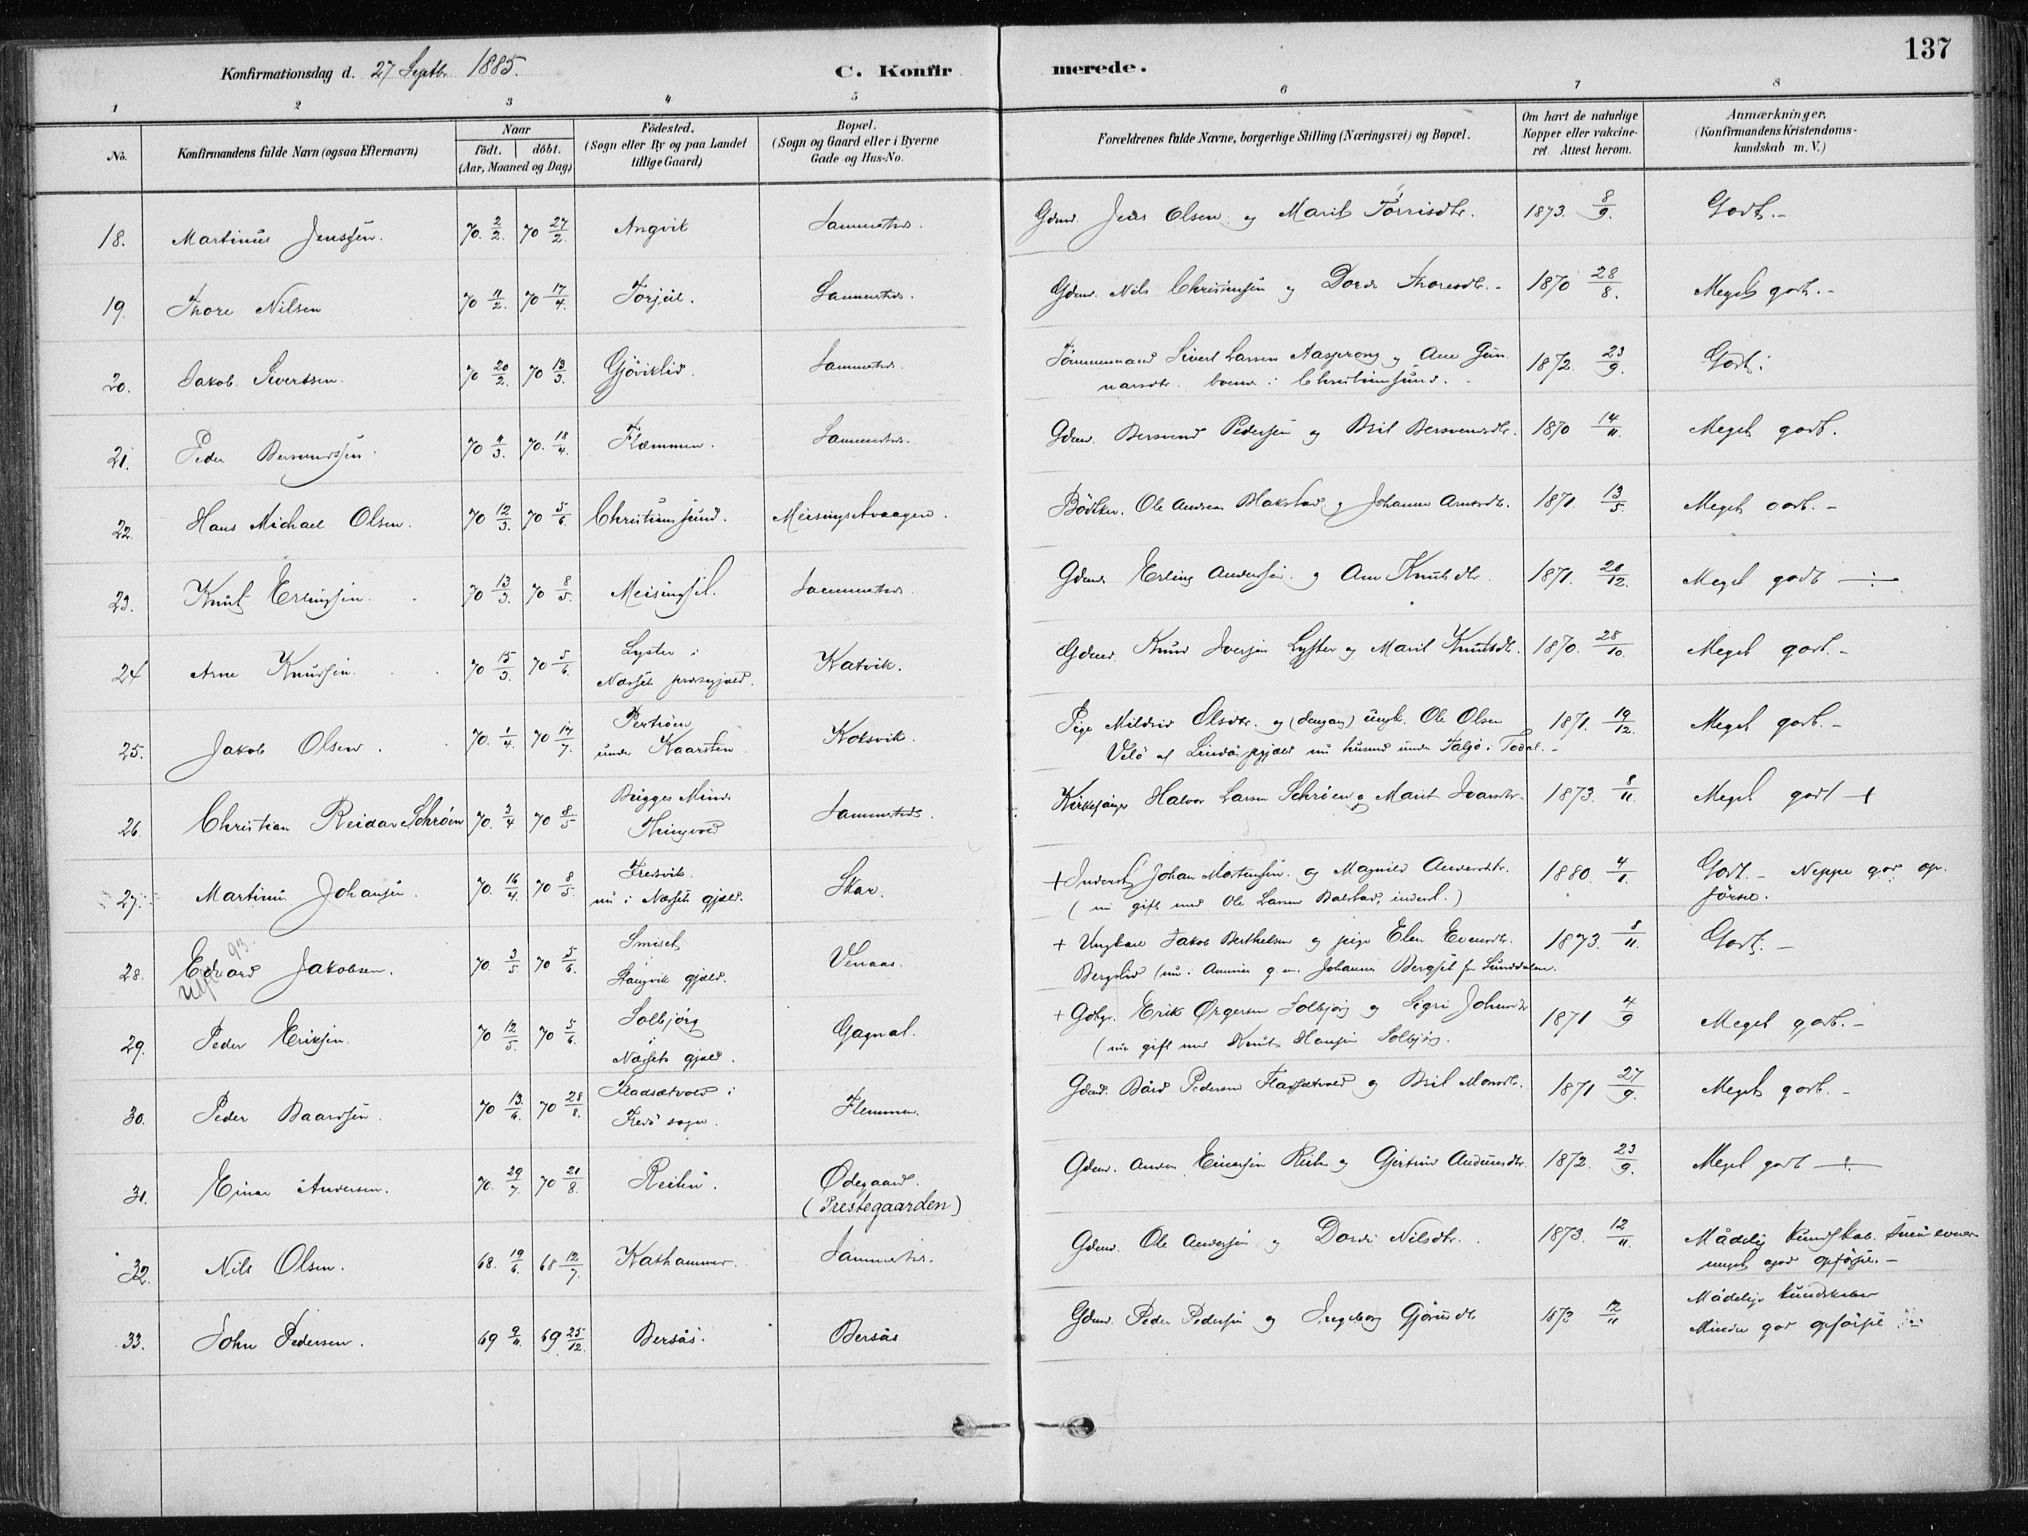 137
Konfirmationsdag d. 27 Septbr. 1885. C. Konfirmerede.
1 2 3 4 5 6 7 8
No. Konfirmandens fulde Navn (ogsaa Efternavn) Naar födt. döbt. (Aar, Maaned og Dag) Födested. (Sogn eller By og paa Landet tillige Gaard) Bopæl. (Sogn og Gaard eller i Byerne Gade og Hus-No. Forældrenes fulde Navne, borgerlige Stilling (Næringsvei) og Bopæl. Om havt de naturlige Kopper eller vakcineret. Attest herom. Anmærkninger. (Konfirmandens Kristendomskundskab m. V.)
18. Martinus Jenssen. 70. 2/2. 70 27/2. Angvik Sammesteds. Gdmd. Jens Olsen og Marit Tørrisdtr. 1873. 8/9. Godt.-
19. Thore Nilsen 70 11/2. 70 17/4. Torjul. Sammesteds. Gdmd. Nils Christensen og Dordi Thoresdtr. - 1870 28/8. Meget godt. -
20. Jakob Sivertsen. 70 20/2. 70 13/3. Gjöviklid. Sammesteds. Tömmermand Sivert Larsen Aasprong og Ane Gunnarsdtr. boende i Christiansund. 1872. 23/9. Godt.
21. Peder Bersvendsen. 70 4/3. 70. 18/4. Flemmen. Sammesteds. Gdmd. Bersvend Pedersen og Brit Bersvendsdtr. 1870 14/11. Meget godt.
22. Hans Michael Olsen. 70 12/3. 70 5/6. Christiansund. Meisingsetvaagen. Bödker. Ole Andreas Blakstad og Johanna Arntsdtr. 1871. 13/5. Meget godt. -
23. Knut Erlingsen. 70 13/3. 70 8/5. Meisingset. Sammesteds. Gdmd. Erling Andersen og Ane Knutsdtr. 1871. 20/12. Meget godt
24 Arne Knudsen. 70 15/3. 70 5/6. Lyster i Næsset præstegjæld. Katvik. Gdmd. Knud Iversen Lyster og Marit Knutsdtr. 1870. 28/10. Meget godt. -
25. Jakob Olsen. 70. 1/4. 70 17/7. under Kaarsten Koksvik. Pige Mildrid Olsdtr. og ungk. Ole Olsen 1871. 19/12. Meget godt. -
26. Christian Reidar Schröen 70. 3/4 70 8/5 Brigges Minde Thingvold Sammesteds. Kirkesanger Halvor Larsen Schröen og Marit Ivarsdtr. 1873. 8/11. Meget godt +
27. Martinus Johansen 70. 16/4. 70 8/5. Fredsvik nu i Næsset gjæld. Skar. + Inderst Johan Mortensen og Magnild Andersdtr. (nu gift med Ole Larsen Balstad, inderst.) 1880. 4/1. Godt. - Neppe god opförsel.
28. Edvard Jakobsen. 70. 3/5 70 5/6. Smiset Stangvik gjæld. Venaas. + Ungkarl Jakob Berthelsen og pige Elen Evensdtr. 1873. 8/11. Godt. -
29. Peder Eriksen. 70 12/5. 70 5/6. Solbjörg i Næssets gjæld. Gagnat. + Gdbgr. Erik Ørgersen Solbjörg og Sigri Johnsdtr (nu gift med Knut Hansen Solbjörg. 1871 4/9 Meget godt. -
30. Peder Baardsen. 70 13/6. 70 28/8. Fladsætvold i Fredö sogn. Flemmen. Gdmd. Bård Pedersen Fladsætvold og Brit Monsdtr. 1871 27/9. Meget godt. -
31. Einar Andersen. 70. 29/7. 70 21/8. Reiten. Ødegaard. (Prestegaarden) Gdmd. Anders Einarsen Reiten og Gjertrud Andersdtr. 1872. 23/9. Meget godt
32. Nils Olsen. 68. 19/6. 68 12/7. Kathammer. Sammesteds. Gdmd. Ole Andersen og Dordi Nilsdtr. 1873. 12/11. Mådelig kundskab. Små evner meget god opförsel. -
33. John Pedersen. 69 9/11. 69 25/12. Bersås. Bersås Gdmd. Peder Pedersen og Ingeborg Gjörudsdtr 1873 12/11 Mådelige kundskaber Mindre god opförsel